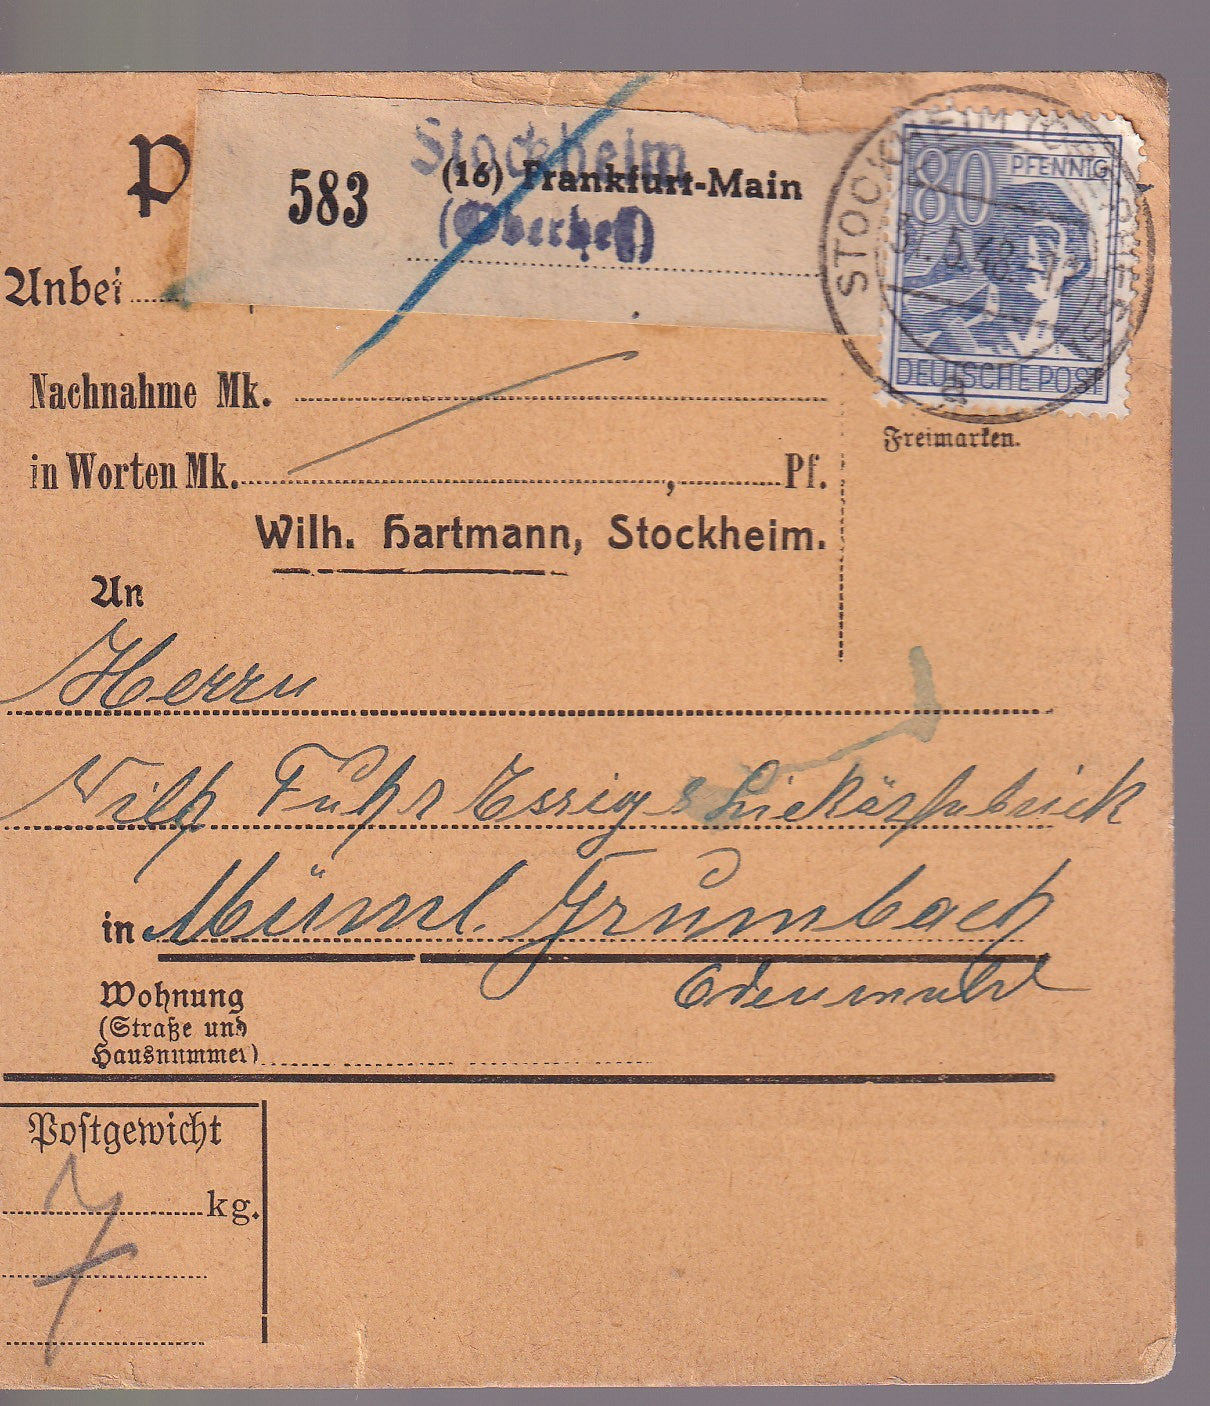 P
583 (16) Frankfurt-Main
Stockheim
(Oberhess)
80 PFENNIG
DEUTSCHE POST
STOCKHEIM (OBERHESS)
5.48
a
Anbei
Nachnahme Mk.
in Worten Mk. , Pf.
Freimarken.
Wilh. Hartmann, Stockheim.
An
Herrn
Wilh Führ Essig & Likörfabrick
in Müml. Grumbach
Odenwald
Wohnung
(Straße und
Hausnummer)
Postgewicht
7 kg.